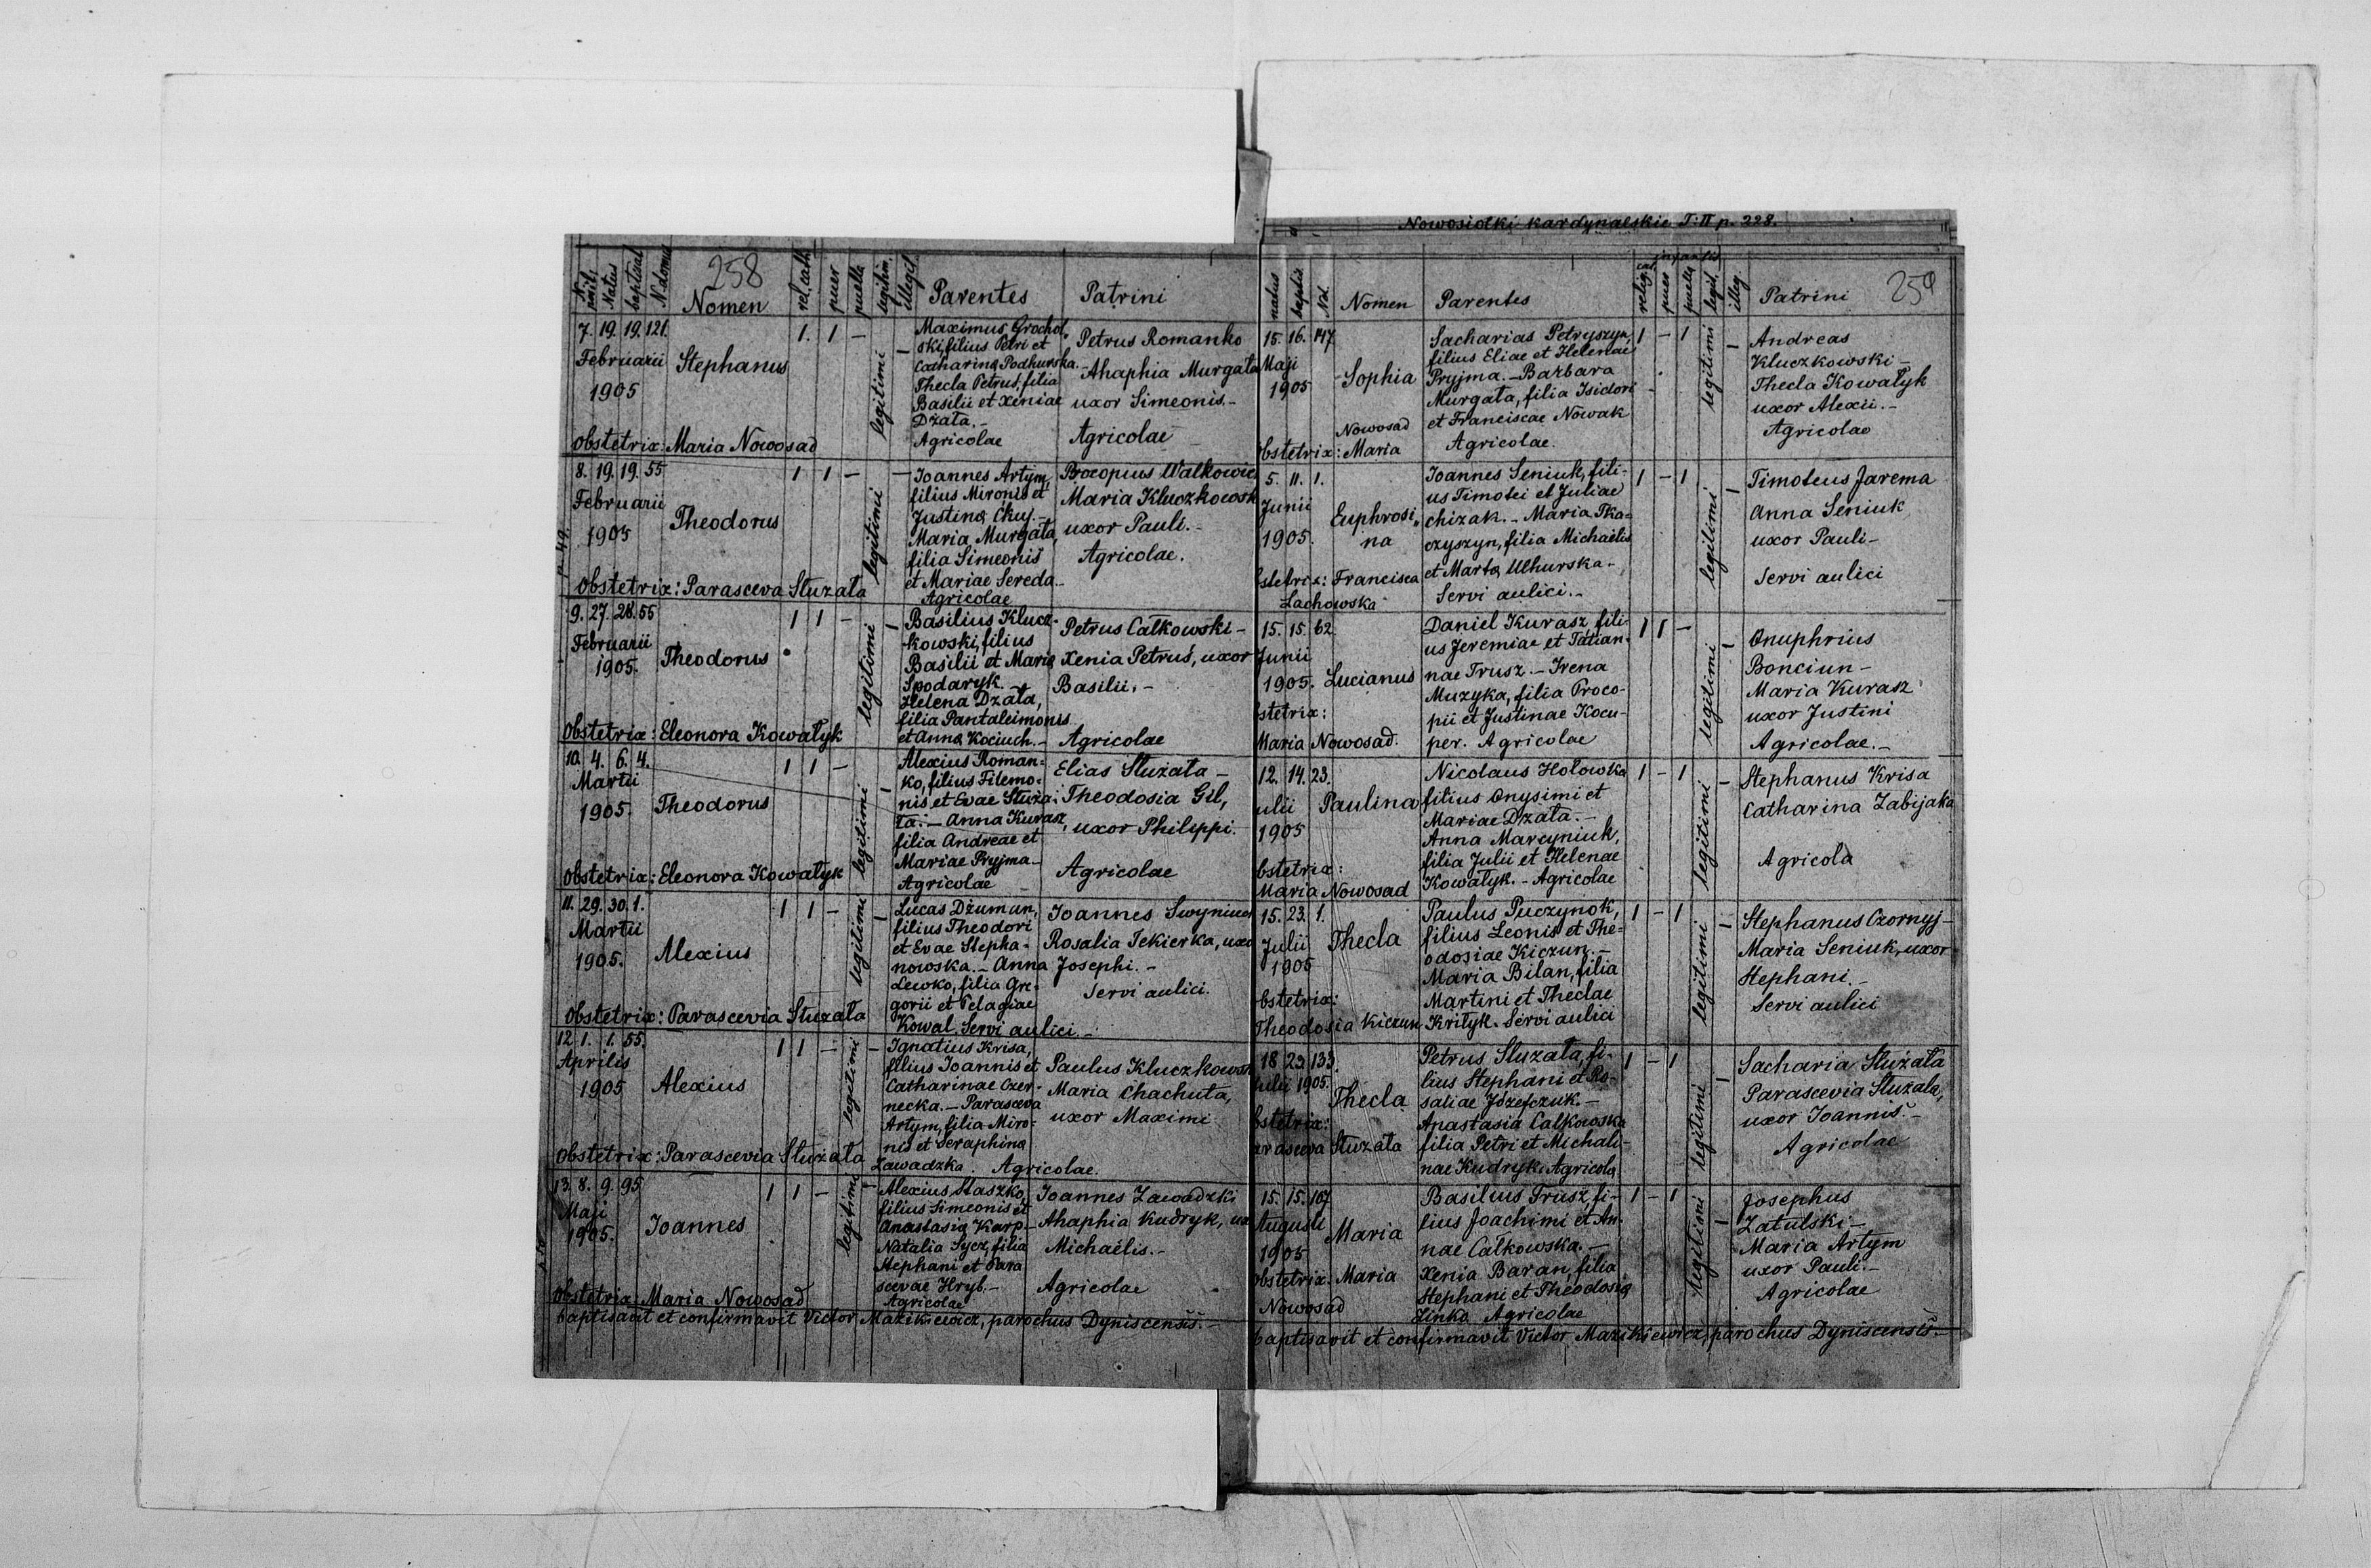 258
N.
Natus
baptisat
N. domus
Nomen
rel. cath.
puer
puella
legitim.
illegit.
Parentes
Patrini
7. 19. 19. 121.
Februarii
1905
Stephanus
1. 1 –
legitimi
Maximus Grochol-
ski, filius Petri et
Catharina Podhurska.
Thecla Petrus, filia
Basilii et Xeniae
Dżała.-
Agricolae
Petrus Romanko
Ahaphia Murgała
uxor Simeonis.-
Agricolae
Obstetrix: Maria Nowosad
8. 19. 19. 55
Februarii
1905
p. 49.
Theodorus
1 1 –
legitimi
Joannes Artym,
filius Mironis et
Justina Ckuj.-
Maria Murgała,
filia Simeonis
et Mariae Sereda-
Agricolae
Procopius Walkowic
Maria Kluczkowsk
uxor Pauli.-
Agricolae.
Obstetrix: Parasceva Stużała
9. 27. 28. 55
Februarii
1905.
Theodorus
1 1 –
legitimi
Basilius Klucz-
kowski, filius
Basilii et Maria
Spodaryk.-
Helena Dżała,
filia Pantaleimonis
et Anna Kociuch.-
Petrus Całkowski-
Xenia Petruś, uxor
Basilii.-
Agricolae
Obstetrix: Eleonora Kowałyk
10. 4. 6. 4.
Martii
1905.
Theodorus
1 1 –
legitimi
Alexius Roman-
ko, filius Filemo-
nis et Evae Stuża-
ła.- Anna Kurasz,
filia Andreae et
Mariae Pryjma-
Agricolae
Elias Stużała-
Theodosia Gil,
uxor Philippi.
Agricolae
Obstetrix: Eleonora Kowałyk
11. 29. 30. 1.
Martii
1905.
Alexius
1 1 –
legitimi
Lucas Dżuman,
filius Theodori
et Evae Stepha-
nowska.- Anna
Lewko, filia Gre-
gorii et Pelagiae
Kowal. Servi aulici.-
Joannes Swyniuch
Rosalia Tekierka, uxo
Josephi.-
Servi aulici.
Obstetrix: Parascevia Stużała
12. 1. 1. 55.
Aprilis
1905
Alexius
1 1 –
legitimi
Ignatius Krisa,
filius Joannis et
Catharinae Czer-
necka.- Parasceva
Artym, filia Miro-
nis et Seraphina
Zawadzka. Agricolae.
Paulus Kluczkowsk
Maria Chachuła,
uxor Maximi
Obstetrix: Parascevia Stużała
13. 8. 9. 95
Maji
1905.
Joannes
1 1 –
legitimi
Alexius Staszko,
filius Simeonis et
Anastasia Karp-
Natalia Sycz, filia
Stephani et Para
scevae Hryb.-
Agricolae
Joannes Zawadzki
Ahaphia Kudryk, ux
Michaëlis.-
Agricolae
Obstetrix: Maria Nowosad
baptisavit et confirmavit Victor Mazikiewicz, parochus Dyniscensis.-
Nowosiółki kardynalskie T. II p. 228.
259
natus
baptis.
Nd.
Nomen
Parentes
relig. cat.
infantis
puer
puella
legit.
illeg.
Patrini
15. 16. 147.
Maji
1905
Sophia
1 – 1
legitimi
Sacharias Petryszyn,
filius Eliae et Helenae
Pryjma.- Barbara
Murgała, filia Isidori
et Franciscae Nowak
Agricolae.
Andreas
Kluczkowski-
Thecla Kowałyk
uxor Alexii.-
Agricolae
Nowosad
bstetrix: Maria
5. 11. 1.
Junii
1905.
Euphrosi-
na
1 – 1
legitimi
Joannes Seniuk, fili-
us Timotei et Juliae
Chizak.- Maria Tka-
czyszyn, filia Michaëlis
et Marta Uhurska.-
Servi aulici.-
Timoteus Jarema
Anna Seniuk
uxor Pauli-
Servi aulici
bstetrix: Francisca
Lachowska
15. 15. 62
Junii
1905.
Lucianus
1 1 –
legitimi
Daniel Kurasz fili-
us Jeremiae et Tatian-
nae Trusz.- Irena
Muzyka, filia Proco-
pii et Justinae Kocu-
per. Agricolae
Onuphrius
Bonciun-
Maria Kurasz
uxor Justini
Agricolae.-
bstetrix:
Maria Nowosad.
12. 14. 23.
ulii
1905
Paulina
1 – 1
legitimi
Nicolaus Hołowka
filius Onysimi et
Mariae Dżała.-
Anna Marcyniuk,
filia Julii et Helenae
Kowałyk.- Agricolae
Stephanus Krisa
Catharina Zabijaka
Agricola
bstetrix:
Maria Nowosad
15. 23. 1.
Julii
1905
Thecla
1 – 1
legitimi
Paulus Puczynok,
filius Leonis et The-
odosiae Kiczun.-
Maria Bilan, filia
Martini et Theclae
Krityk. Servi aulici
Stephanus Czornyj-
Maria Seniuk, uxor
Stephani.-
Servi aulici
bstetrix:
Theodosia Kiczun
18 23 133.
Julii 1905.
Thecla
1 – 1
legitimi
Petrus Stużała, fi-
lius Stephani et Ro-
saliae Józefczuk.-
Anastasia Całkowska
filia Petri et Michali-
nae Kudryk. Agricola
Sacharia Stużała
Parascevia Stużała,
uxor Joannis.-
Agricolae
bstetrix:
arasceva Stużała
15. 15. 107
Augusti
1905
Maria
1 – 1
legitimi
Basilius Trusz, fi-
lius Joachimi et An-
nae Całkowska.-
Xenia Baran, filia
Stephani et Theodosia
Zinko Agricolae
Josephus
Zatulski-
Maria Artym
uxor Pauli.-
Agricolae
obstetrix: Maria
Nowosad
baptisavit et confirmavit Victor Mazikiewicz, parochus Dyniscensis.-